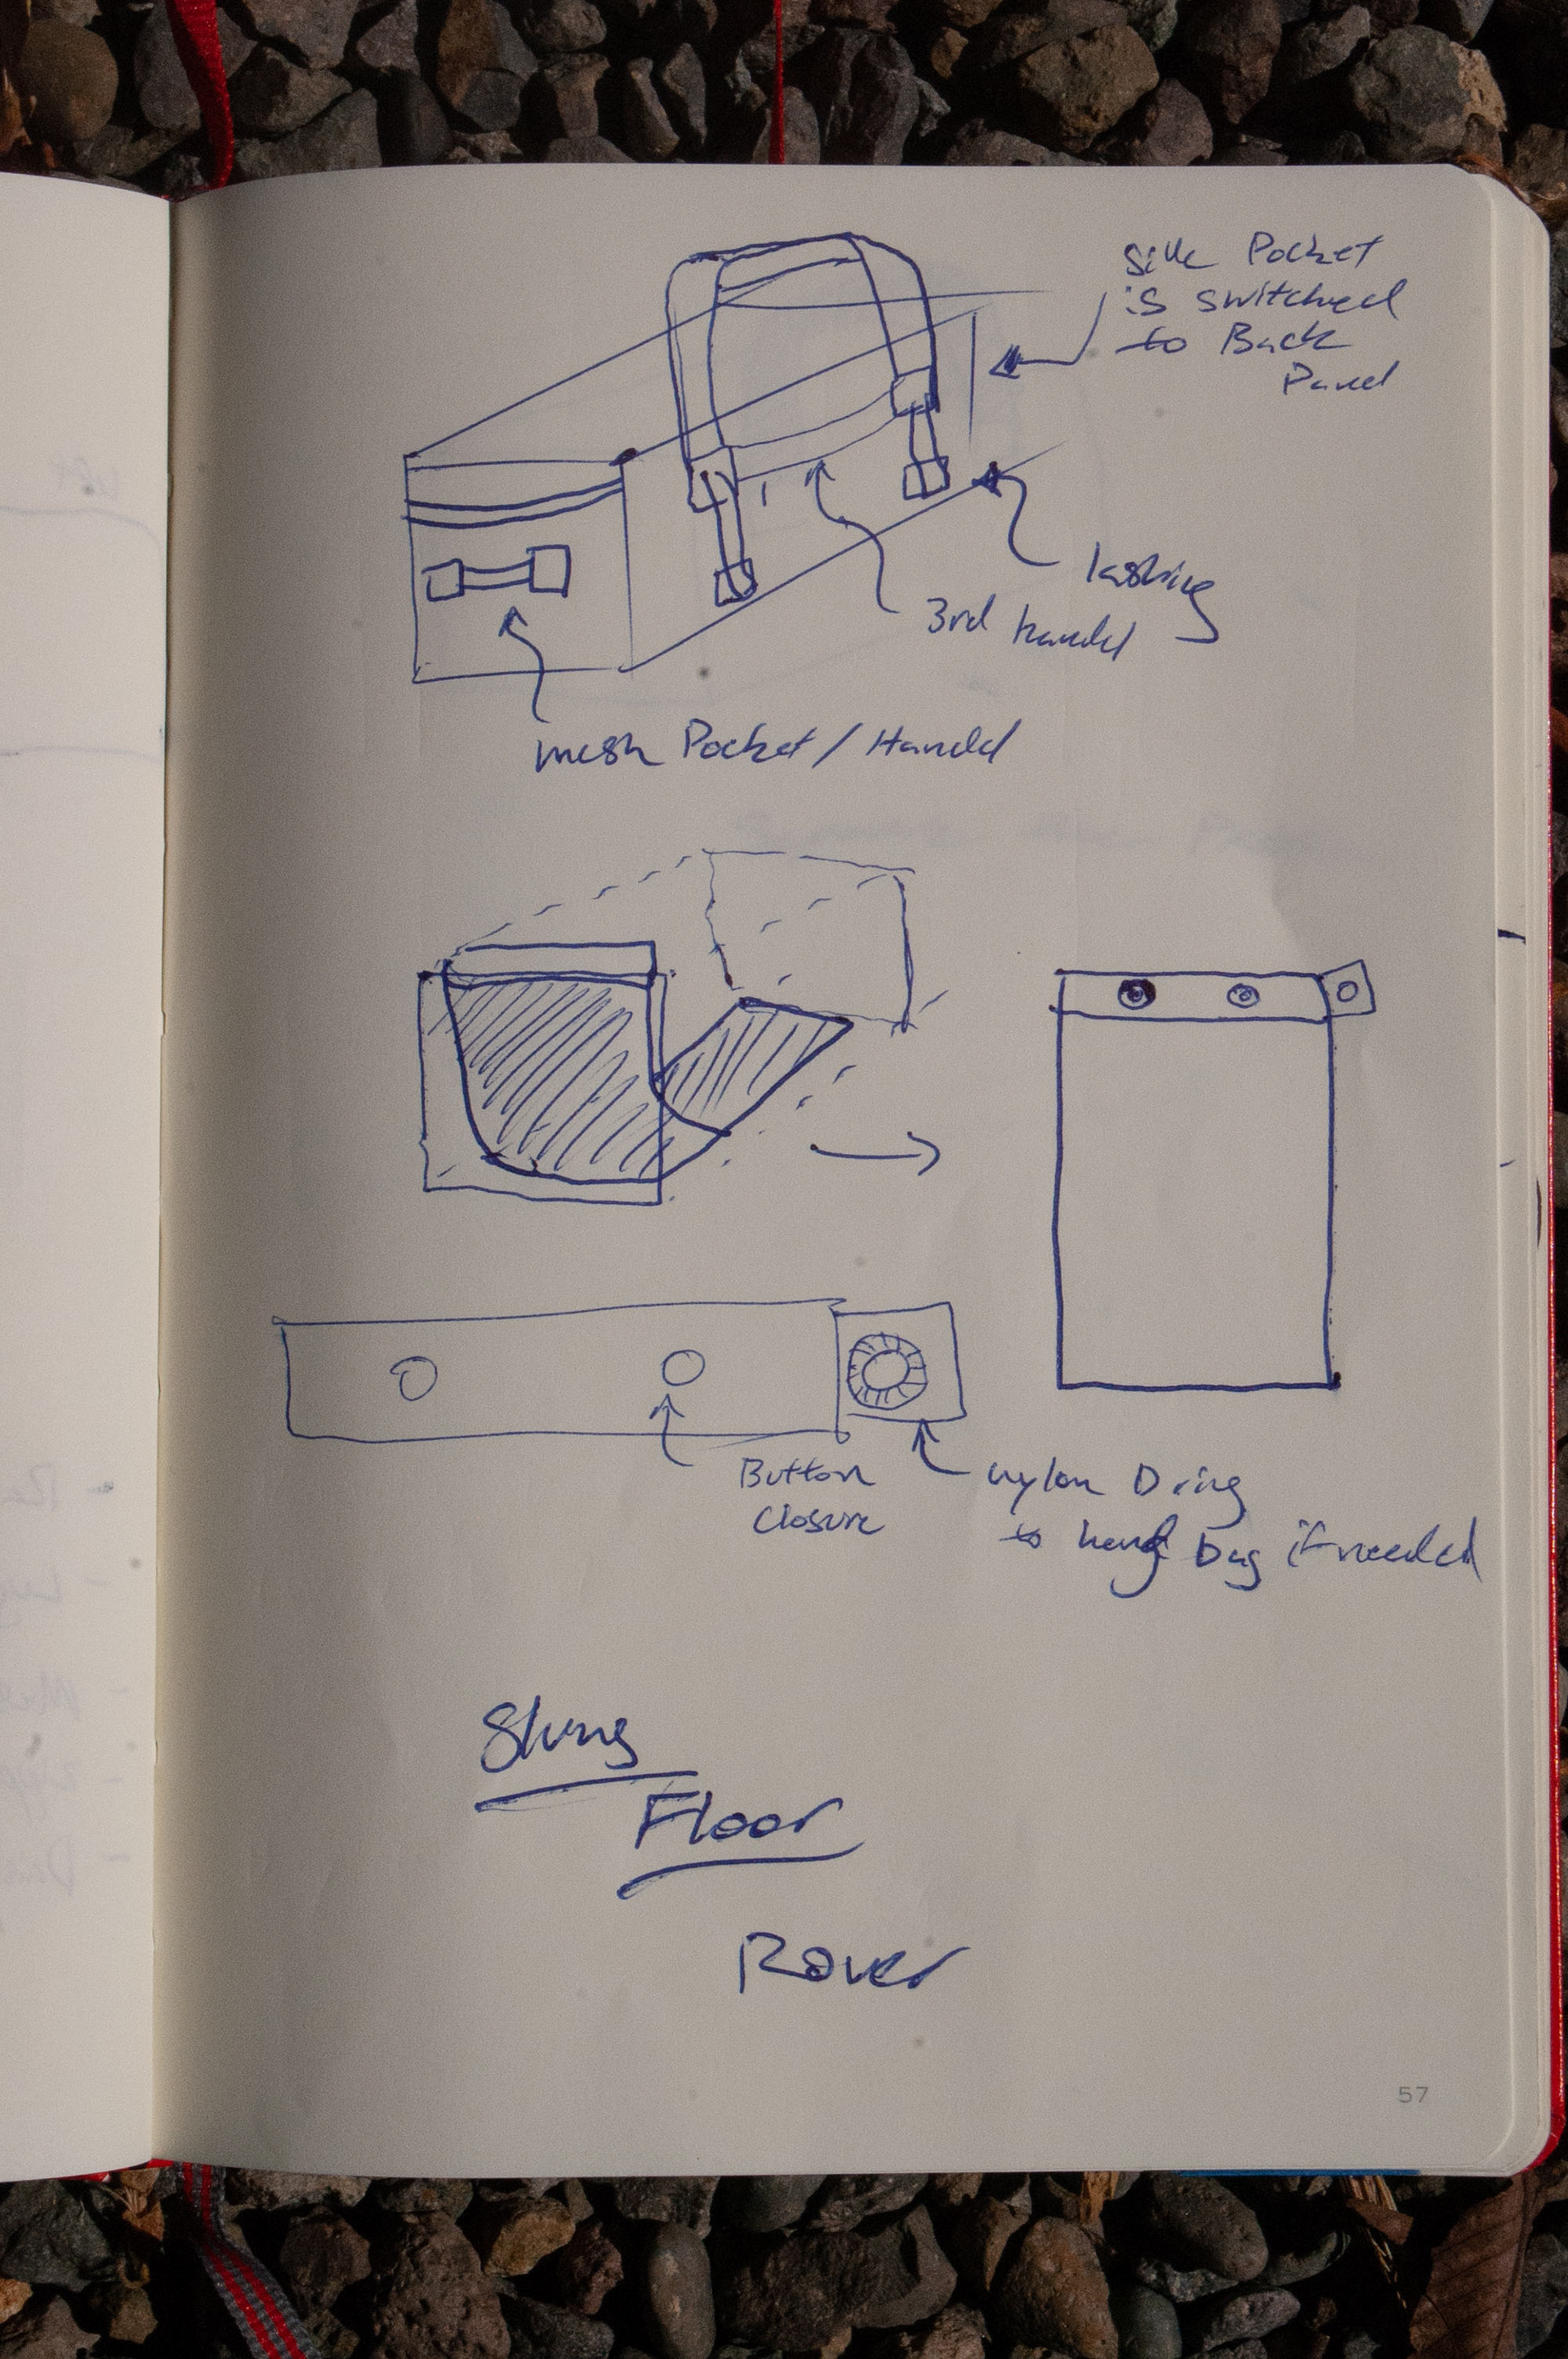 Side Pocket
is switched
to Back
Panel
lashing
3rd handel
mesh Pocket / Handel
Button
Closure
nylon D ring
to hang bag if needed
Slung
Floor
Rover
57